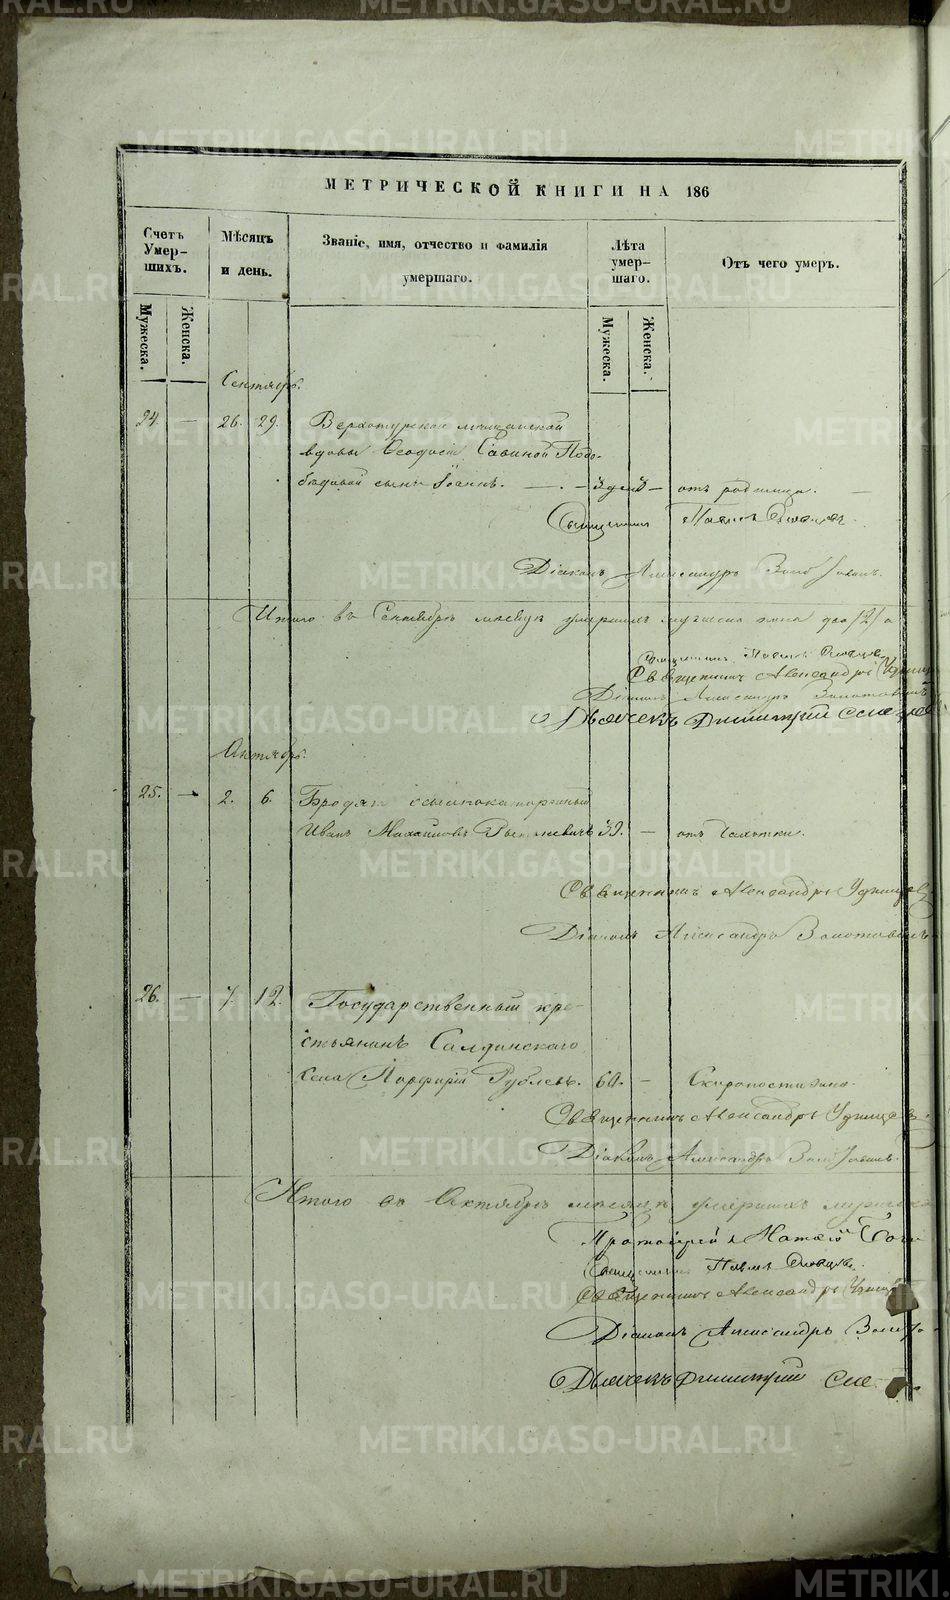 МЕТРИЧЕСКОЙ КНИГИ НА 186
Счетъ Умер-шихъ.
Мѣсяцъ и день.
Званіе, имя, отчество и фамилія умершаго.
Лѣта умер-шаго.
Отъ чего умеръ.
Мужеска.
Женска.
Мужеска.
Женска.
Сентябрь.
24. — 26. 29. Верхотурской мѣщанской
вдовы Ѳеодосіи Савиной
сынъ Іоаннъ. — 3 дней — отъ родимца. —
Священникъ Павелъ
Діаконъ Александръ
Итого въ Сентябрѣ мѣсяцѣ умершихъ мужеска пола два /2/
Священникъ Павелъ
Священникъ Александръ
Діаконъ Александръ
Дьячекъ Димитрий
Октябрь.
25. — 2. 6. Бродяга ссыльнокаторжный
Иванъ Михайловъ 39. — отъ чахотки.
Священникъ Александръ
Діаконъ Александръ
26. — 7. 12. Государственный кре-
стьянинъ Салдинскаго
села Порфирій Рублевъ. 60. — Скоропостижно.
Священникъ Александръ
Діаконъ Александръ
Итого въ Октябрѣ мѣсяцѣ умершихъ
Протоіерей
Священникъ Павелъ
Священникъ Александръ
Діаконъ Александръ
Дьячекъ Димитрий
METRIKI.GASO-URAL.RU